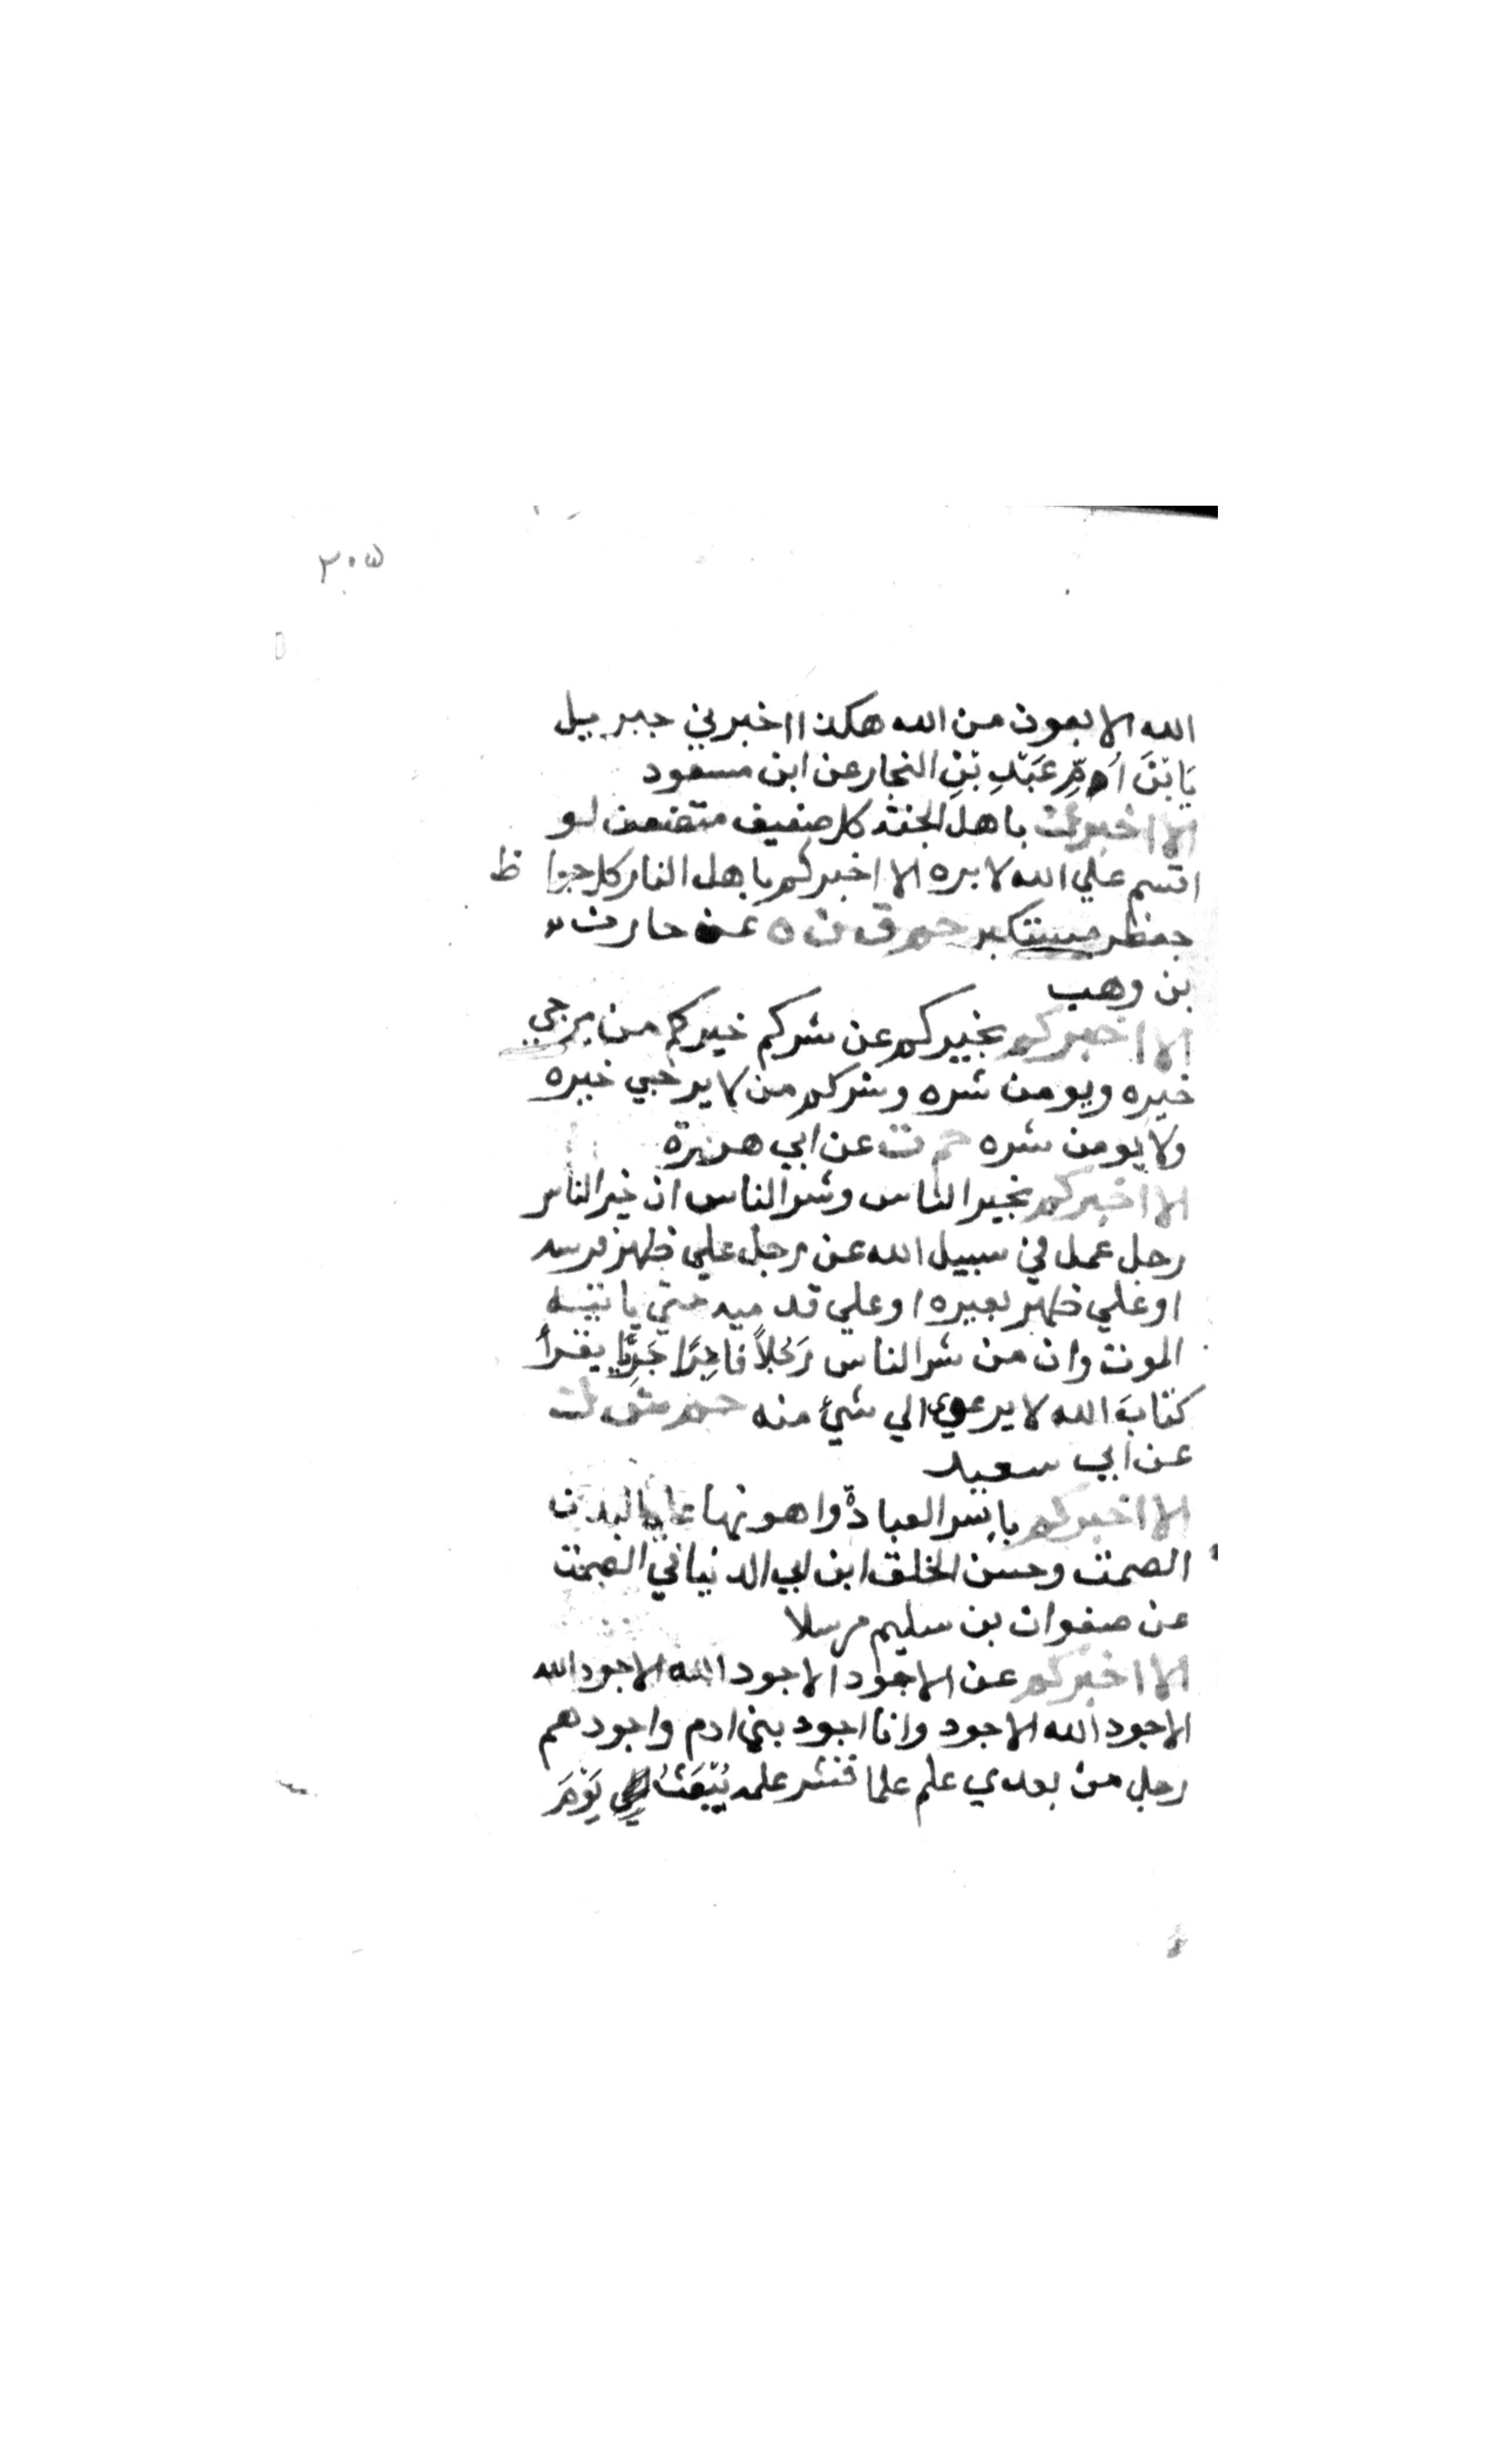 ٢٠٥
الله الا بعون من الله هكذا اخبرني جبريل
يَا بْنَ اُمِّ عَبْدِ بْنِ النجار عن ابن مسعود
الا اخبرك باهل الجنة كل ضعيف متضعف لو
اقسم علي الله لابره الا اخبركم باهل النار كل جوا ظ
جعظر مستكبر حم ق ن ه عن حارث
بن وهب
الا اخبركم بخيركم عن شركم خيركم من يرجي
خيره ويومن شره وشركم من لا يرجي خيره
ولا يومن شره حم ت عن ابي هريرة
الا اخبركم بخير الناس وشر الناس ان خير الناس
رجل عمل في سبيل الله عن رجل علي ظهر فرسه
او علي ظهر بعيره او علي قدميه حتي ياتيه
الموت وان من شر الناس رَجُلاً فاجِرًا جَرِيًّا يقرأ
كتابَ الله لا يرعوي الي شيءٍ منه حم ك
عن ابي سعيد
الا اخبركم بايسر العبادة واهونها علي البدن
الصمت وحسن الخلق ابن ابي الدنيا في الصمت
عن صفوان بن سليم مرسلا
الا اخبركم عن الاجود الاجود الله الاجود الله
الاجود الله الاجود وانا اجود بني ادم واجودهم
رجل من بعدي علم علما فنشر علمه يُبْعَثُ يَوْمَ